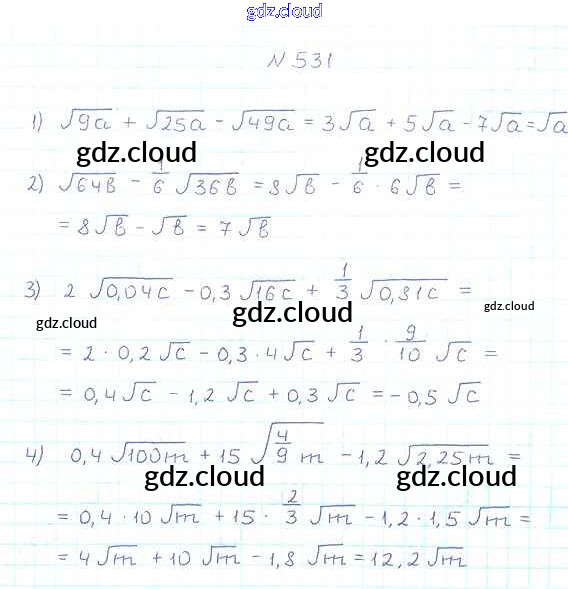 gdz.cloud
N 531
1) √9a + √25a - √49a = 3√a + 5√a - 7√a = √a
gdz.cloud gdz.cloud
2) √64b - 1/6 √36b = 8√b - 1/6 · 6√b =
= 8√b - √b = 7√b
3) 2 √0,04c - 0,3 √16c + 1/3 √0,81c =
gdz.cloud gdz.cloud gdz.cloud
= 2 · 0,2 √c - 0,3 · 4√c + 1/3 · 9/10 √c =
= 0,4√c - 1,2 √c + 0,3 √c = -0,5 √c
4) 0,4 √100m + 15 √4/9 m - 1,2 √2,25m =
gdz.cloud gdz.cloud
= 0,4 · 10 √m + 15 · 2/3 √m - 1,2 · 1,5 √m =
= 4√m + 10 √m - 1,8 √m = 12,2√m
gdz.cloud gdz.cloud